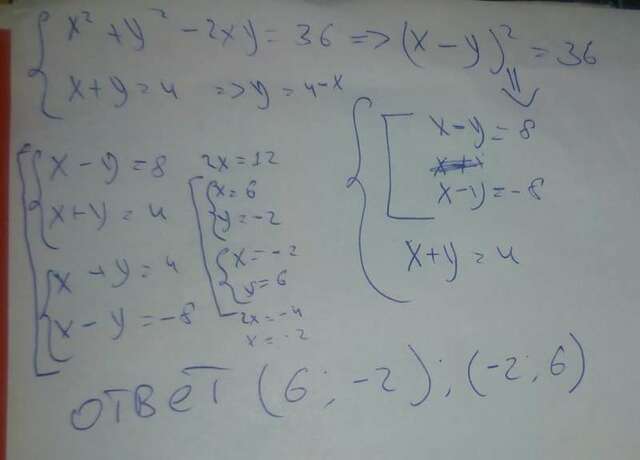 x² + y² - 2xy = 36 => (x - y)² = 36
x + y = 4 => y = 4-x
x - y = 8
x - y = -8
x + y = 4
x - y = 8
x + y = 4
x + y = 4
x - y = -8
2x = 12
x = 6
y = -2
x = -2
y = 6
2x = -4
x = -2
ответ (6; -2); (-2; 6)